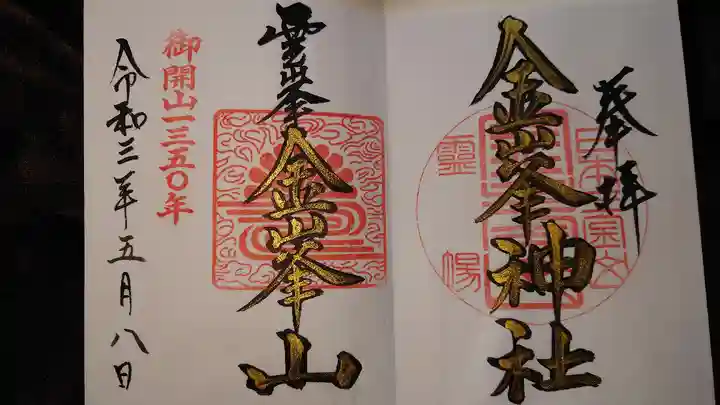 奉拝
金峯神社
霊場
霊峯
金峯山
御開山一三五〇年
令和三年五月八日